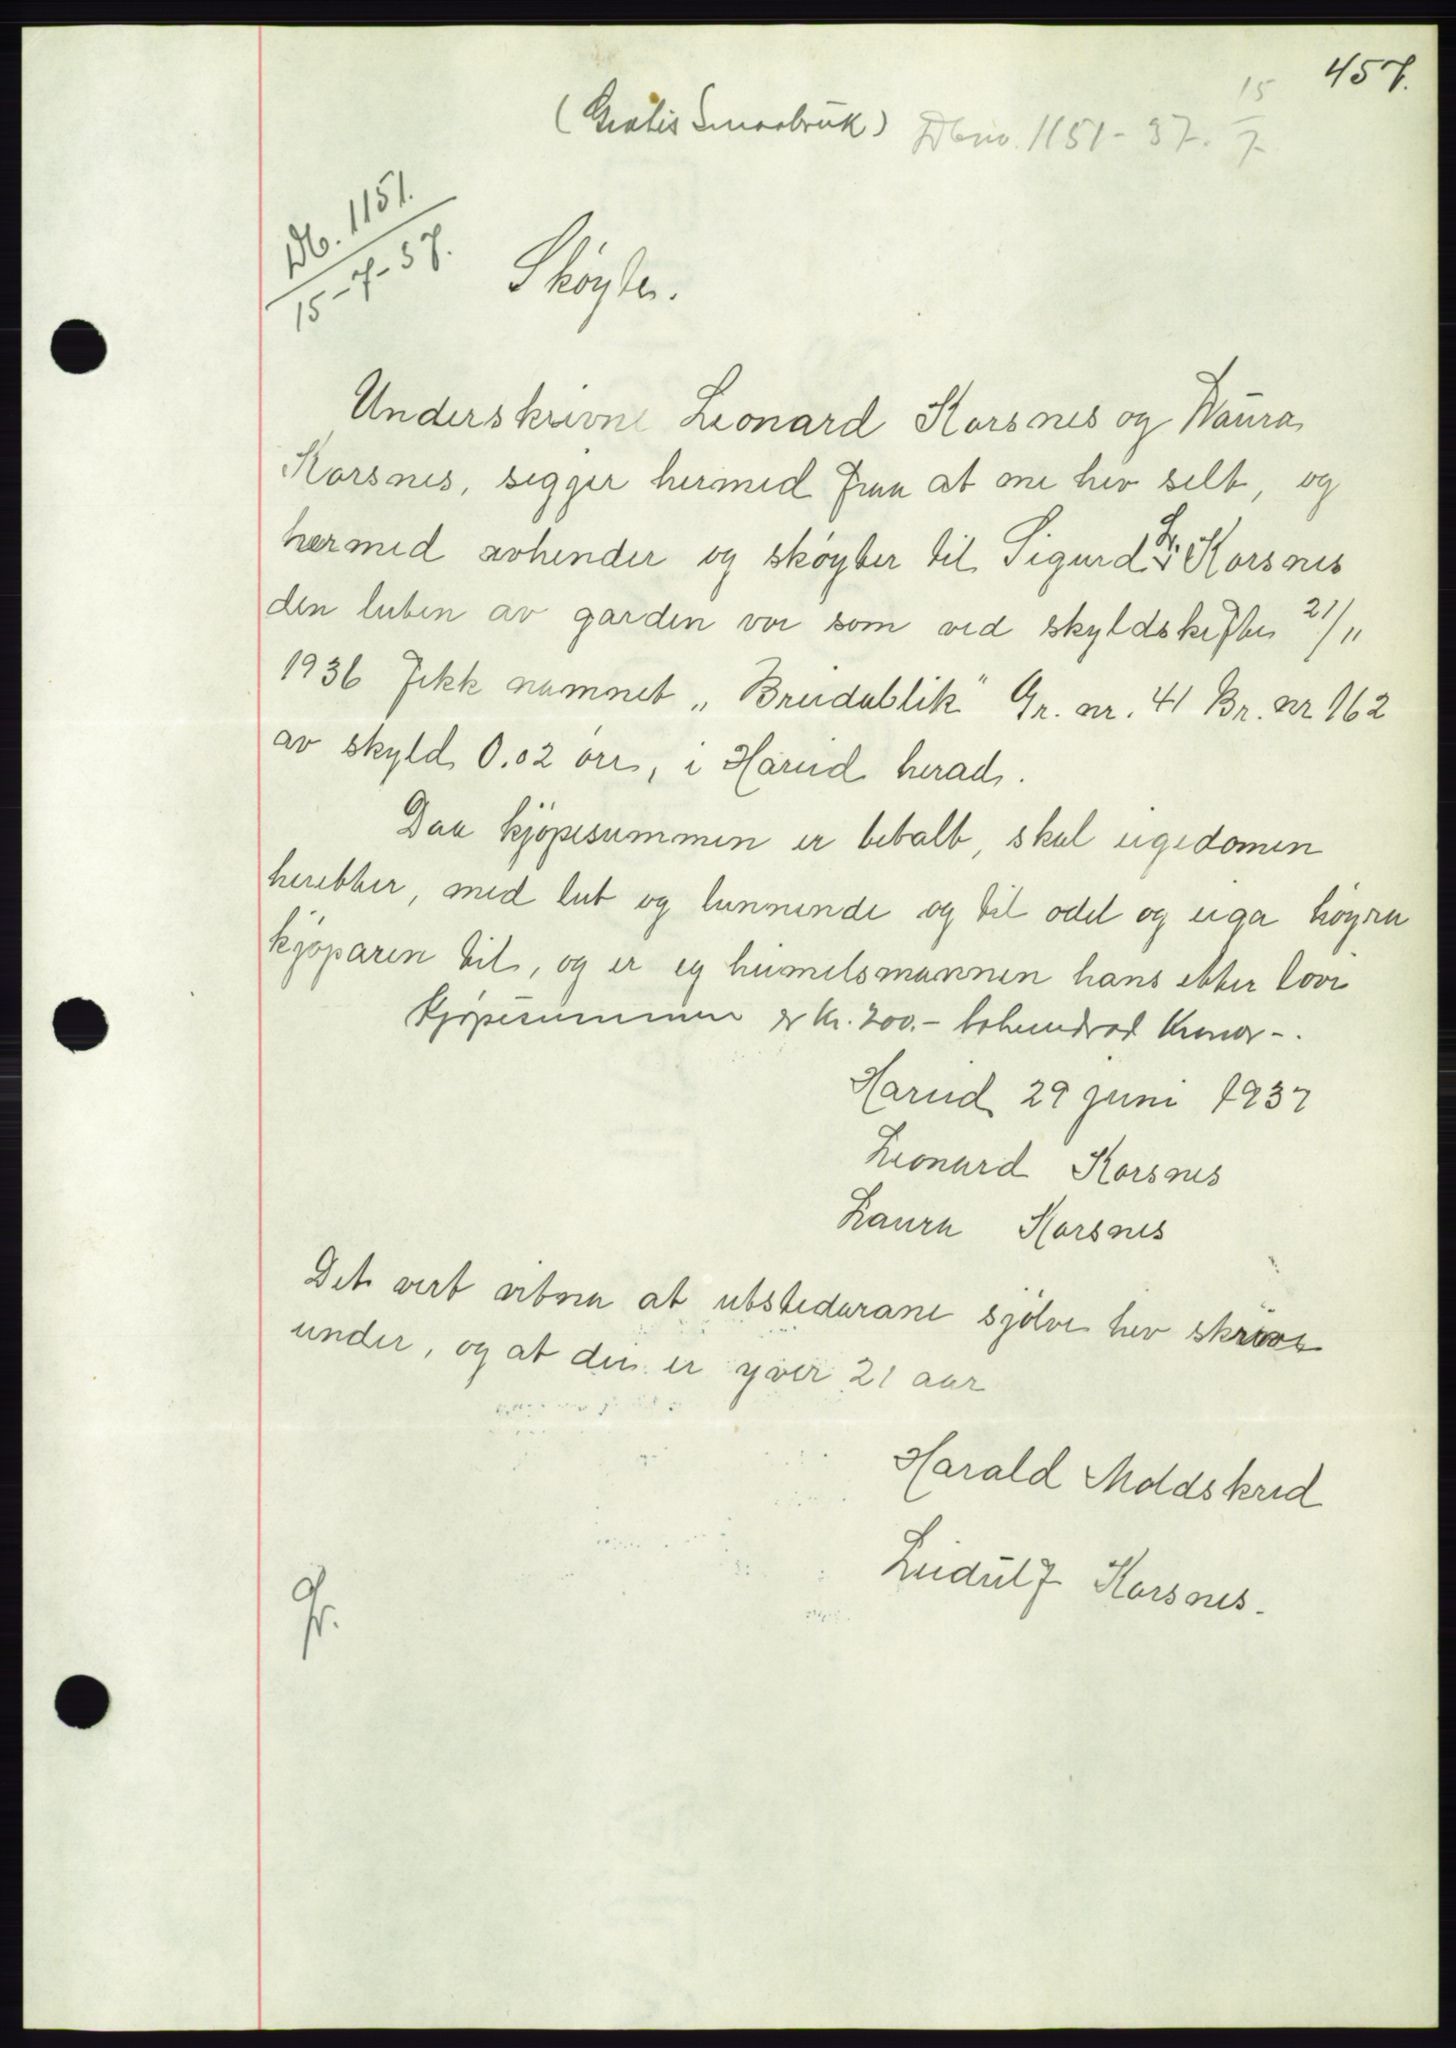 457.
(Gratis Smaabruk) Dbnr. 1151-37. 15/7
Db. 1151.
15-7-37.
Skøyte.
Underskrivne Leonard Korsnes og Laura
Korsnes, segjer hermed fraa at me hev selt, og
hermed avhender og skøyter til Sigurd L. Korsnes
den luten av garden vor som ved skyldskifte 21/11
1936 fekk namnet „Breidablik" Gr. nr. 41 Br. nr 162
av skyld 0.02 öre, i Hareid herad.
Daa kjøpesummen er betalt, skal eigedomen
heretter, med lut og lunnende og til odel og eiga høyra
kjøparen til, og er eg heimelsmannen hans etter lovi
Kjøpesummen er kr. 200.- tohundrad kronor -.
Hareid 29 juni 1937
Leonard Korsnes
Laura Korsnes
Det vert vitna at utstedarane sjølve hev skrive
under, og at dei er yver 21 aar
Harald Moldskred
Leidulf Korsnes.